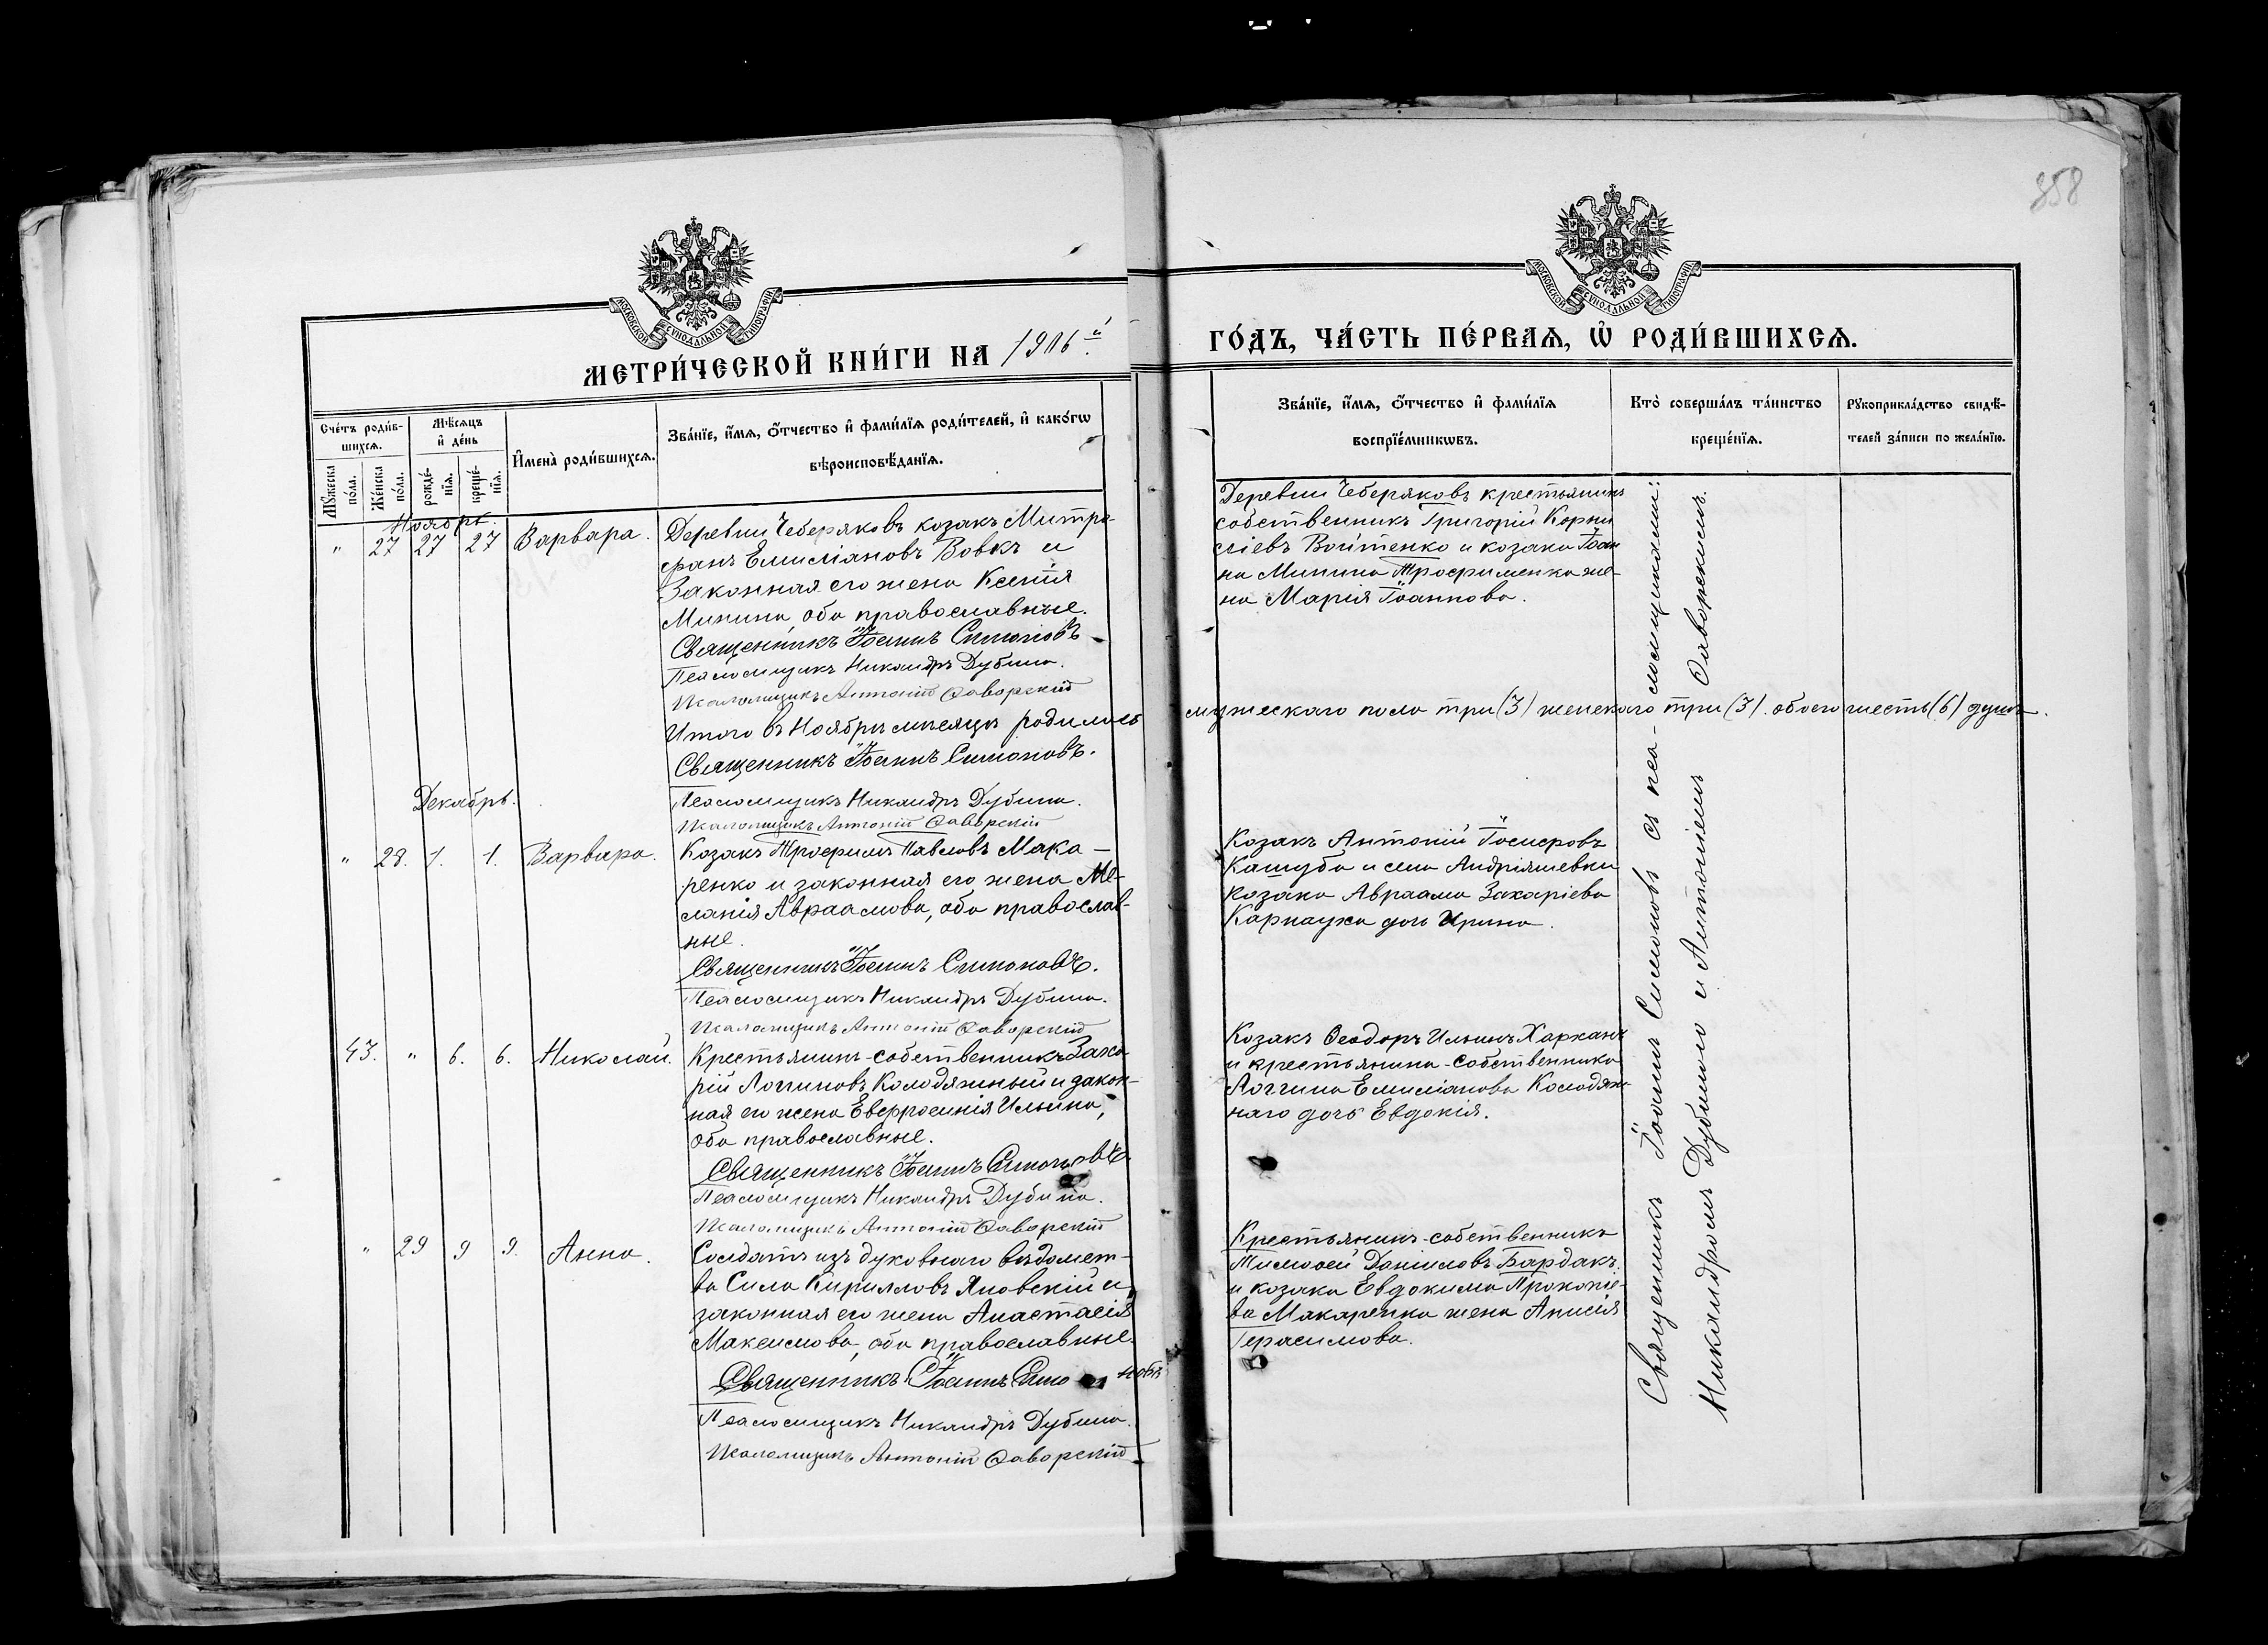 358
МОСКОВСКОЙ СѴНОДАЛЬНОЙ ТИПОГРАФІИ
МОСКОВСКОЙ СѴНОДАЛЬНОЙ ТИПОГРАФІИ
МЕТРИ́ЧЕСКОЙ КНИ́ГИ НА 1916й
ГО́ДЪ, ЧА́СТЬ ПЕ́РВАѦ, Ѡ҆ РОДИ́ВШИХСѦ.
Сче́тъ роди́в-
шихсѧ.
Мѣ́сѧцъ
и҆ де́нь
Мꙋ́жеска
по́ла.
Же́нска
по́ла.
рожде́-
нїѧ.
креще́-
нїѧ.
И҆мена̀ роди́вшихсѧ.
Зва́нїе, и҆́мѧ, ѻ҆́тчество и҆ фами́лїѧ роди́телей, и҆ како́гѡ
вѣроисповѣ́данїѧ.
Зва́нїе, и҆́мѧ, ѻ҆́тчество и҆ фами́лїѧ
воспрїе́мникѡвъ.
Кто̀ соверша́лъ та́инство
креще́нїѧ.
Рꙋкоприкла́дство свидѣ́-
телей за́писи по жела́нїю.
Ноябрь.
" 27 27 27 Варвара.
Деревни Чеберяковъ козакъ Митро-
фанъ Емиліановъ Вовкъ и
Законная его жена Ксенія
Минина, оба православные.
Священникъ Іоаннъ Симоновъ
Псаломщикъ Никандръ Дубина.
Псаломщикъ Антоній Ѳаворскій
Деревни Чеберяковъ крестьянинъ
собственникъ Григорій Корни
ліевъ Войтенко и козака Іоан
на Минина Трофименка же-
на Марія Іоаннова.
Итого въ Ноябрѣ мѣсяцѣ родилось мужескаго пола три (3) женскаго три (3). обоего шесть (6) душъ.
Священникъ Іоаннъ Симоновъ.
Псаломщикъ Никандръ Дубина.
Псаломщикъ Антоній Ѳаворскій
Декабрь.
" 28. 1. 1. Варвара.
Козакъ Трофимъ Павловъ Мака-
ренко и законная его жена Ме-
ланія Авраамова, оба православ-
ные.
Священникъ Іоаннъ Симоновъ.
Псаломщикъ Никандръ Дубина.
Псаломщикъ Антоній Ѳаворскій
Козакъ Антоній Іосифовъ
Кашуба и села Андріяшевки
козака Авраама Захаріева
Карнауха дочь Ирина.
43. " 6. 6. Николай.
Крестьянинъ-собственникъ Заха
рій Логгиновъ Колодяжный и закон-
ная его жена Евфросинія Ильина,
оба православные.
Священникъ Іоаннъ Симоновъ
Псаломщикъ Никандръ Дубина.
Псаломщикъ Антоній Ѳаворскій
Козакъ Ѳеодоръ Ильинъ Харханъ
и крестьянина-собственника
Логгина Емиліанова Колодяж
наго дочь Евдокія.
" 29 9 9. Анна.
Солдатъ изъ духовнаго вѣдомст-
ва Сила Кирилловъ Яновскій и
законная его жена Анастасія
Максимова, оба православные.
Священникъ Іоаннъ Симоновъ
Псаломщикъ Никандръ Дубина.
Псаломщикъ Антоній Ѳаворскій
Крестьянинъ-собственникъ
Тимоѳей Даниловъ Бардакъ
и козака Евдокима Прокопіе-
ва Макаренка жена Анисія
Герасимова.
Священникъ Іоаннъ Симоновъ съ пса-ломщиками:
Никандромъ Дубиною и Антоніемъ Ѳаворскимъ.